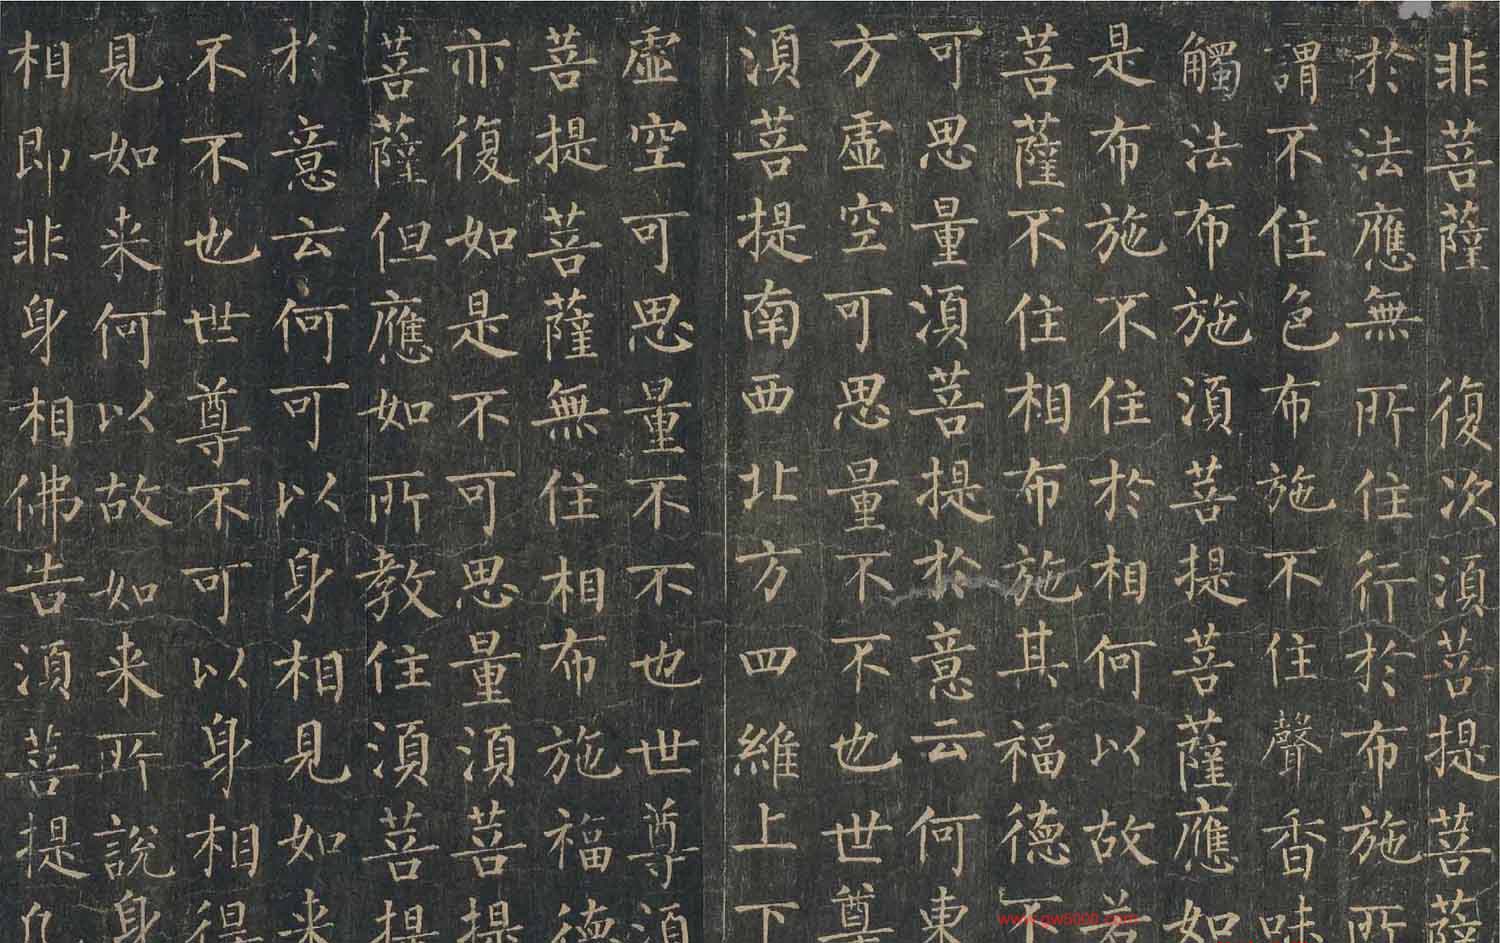 非菩薩 復次須菩提菩薩
於法應無所住行於布施所
謂不住色布施不住聲香味
觸法布施須菩提菩薩應如
是布施不住於相何以故若
菩薩不住相布施其福德不
可思量須菩提於意云何東
方虛空可思量不不也世尊
須菩提南西北方四維上下
虛空可思量不不也世尊須
菩提菩薩無住相布施福德
亦復如是不可思量須菩提
菩薩但應如所教住須菩提
於意云何可以身相見如来
不不也世尊不可以身相得
見如来何以故如来所說身
相即非身相佛告須菩提凡